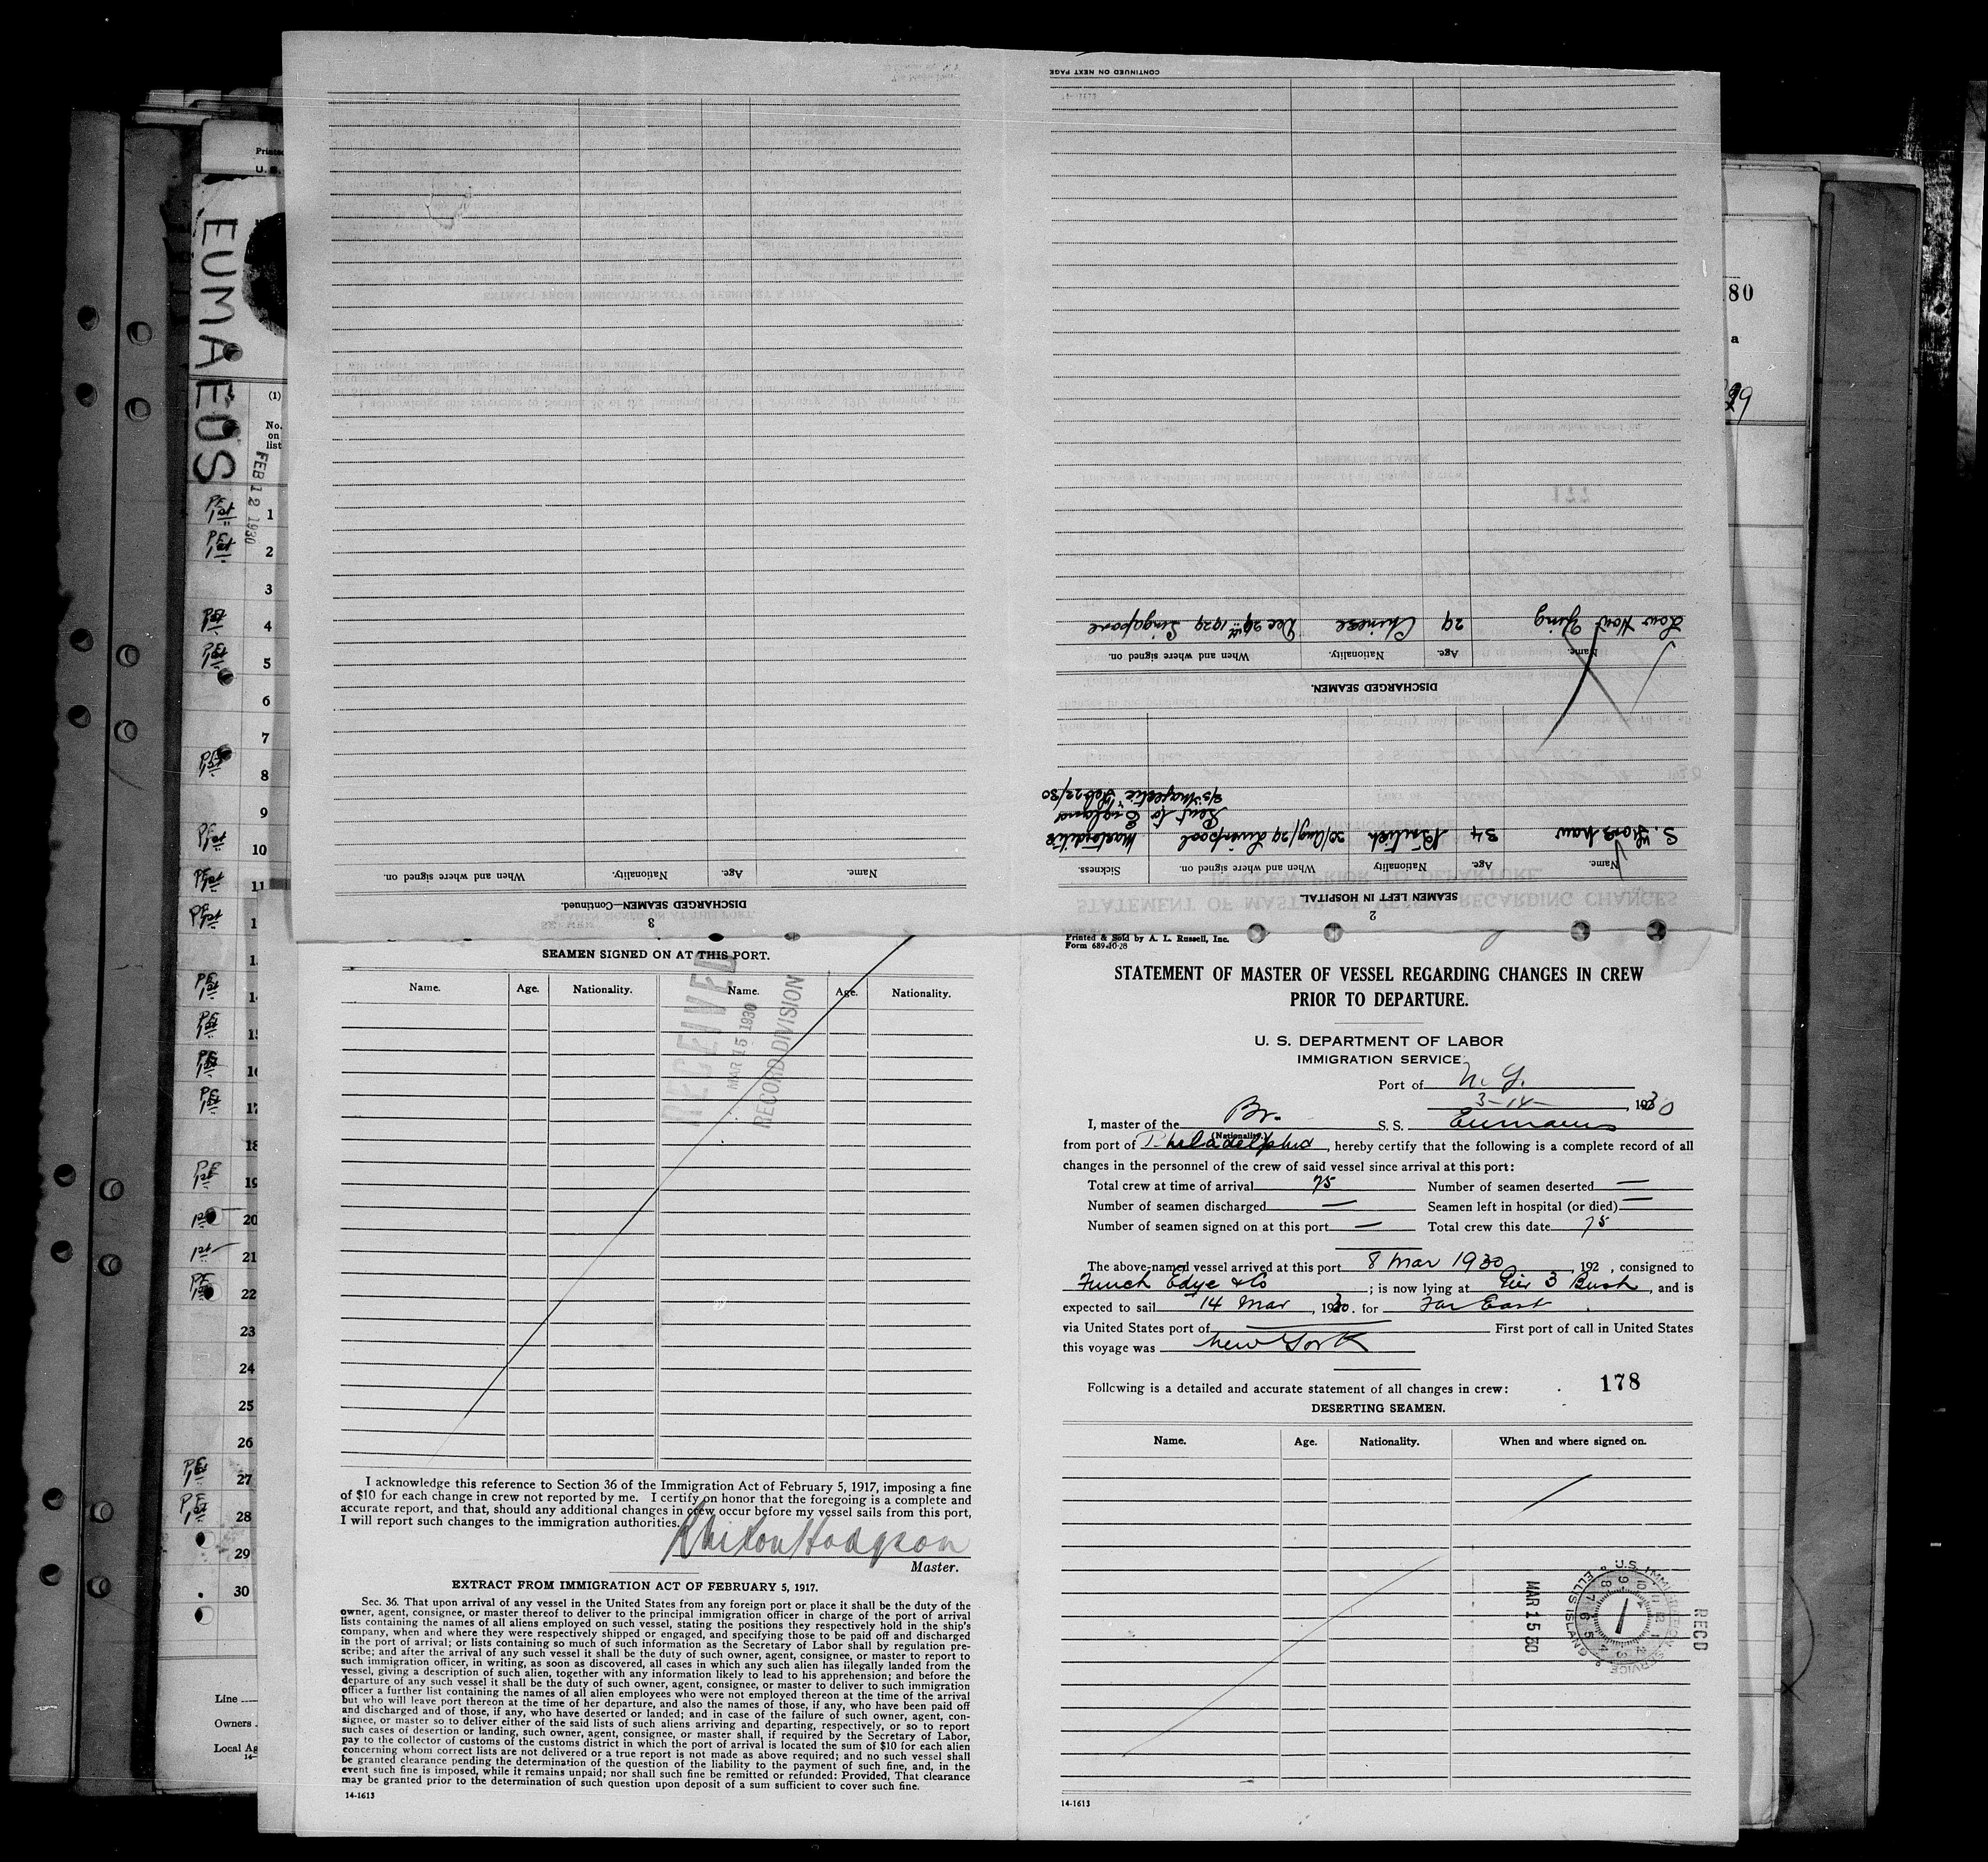 CONTINUED ON NEXT PAGE
Low How Ying 29 Chinese Dec 29th 1929 Singapore
Name. Age. Nationality. When and where signed on.
DISCHARGED SEAMEN.
S. Forshaw 34 British 20/Aug/29 Liverpool Mastoiditis
Sent to England
s/s "Majestic" Feb 22/30
Name. Age. Nationality When and where signed on. Sickness.
SEAMEN LEFT IN HOSPITAL
2
Name. Age. Nationality. When and where signed on.
DISCHARGED SEAMEN—Continued.
3
EUMAEOS
FEB 12 1930
Printed
U. S.
(1)
No.
on
list
1
2
3
4
5
6
7
8
9
10
11
18
19
20
21
22
23
24
25
26
27
28
29
30
Line
Owners
Local Ag
80
a
SEAMEN SIGNED ON AT THIS PORT.
Name. Age. Nationality. Name. Age. Nationality.
RECEIVED
MAR 15 1930
RECORD DIVISION
I acknowledge this reference to Section 36 of the Immigration Act of February 5, 1917, imposing a fine
of $10 for each change in crew not reported by me. I certify on honor that the foregoing is a complete and
accurate report, and that, should any additional changes in crew occur before my vessel sails from this port,
I will report such changes to the immigration authorities.
Hodgson
Master.
EXTRACT FROM IMMIGRATION ACT OF FEBRUARY 5, 1917.
Sec. 36. That upon arrival of any vessel in the United States from any foreign port or place it shall be the duty of the
owner, agent, consignee, or master thereof to deliver to the principal immigration officer in charge of the port of arrival
lists containing the names of all aliens employed on such vessel, stating the positions they respectively hold in the ship's
company, when and where they were respectively shipped or engaged, and specifying those to be paid off and discharged
in the port of arrival; or lists containing so much of such information as the Secretary of Labor shall by regulation pre-
scribe; and after the arrival of any such vessel it shall be the duty of such owner, agent, consignee, or master to report to
such immigration officer, in writing, as soon as discovered, all cases in which any such alien has illegally landed from the
vessel, giving a description of such alien, together with any information likely to lead to his apprehension; and before the
departure of any such vessel it shall be the duty of such owner, agent, consignee, or master to deliver to such immigration
officer a further list containing the names of all alien employees who were not employed thereon at the time of the arrival
but who will leave port thereon at the time of her departure, and also the names of those, if any, who have been paid off
and discharged and of those, if any, who have deserted or landed; and in case of the failure of such owner, agent, con-
signee, or master so to deliver either of the said lists of such aliens arriving and departing, respectively, or so to report
such cases of desertion or landing, such owner, agent, consignee, or master shall, if required by the Secretary of Labor,
pay to the collector of customs of the customs district in which the port of arrival is located the sum of $10 for each alien
concerning whom correct lists are not delivered or a true report is not made as above required; and no such vessel shall
be granted clearance pending the determination of the question of the liability to the payment of such fine, and, in the
event such fine is imposed, while it remains unpaid; nor shall such fine be remitted or refunded: Provided, That clearance
may be granted prior to the determination of such question upon deposit of a sum sufficient to cover such fine.
14-1613
Printed & Sold by A. L. Russell, Inc.
Form 689-10-28
STATEMENT OF MASTER OF VESSEL REGARDING CHANGES IN CREW
PRIOR TO DEPARTURE.
U. S. DEPARTMENT OF LABOR
IMMIGRATION SERVICE
Port of N. Y.
3-14-, 1930
I, master of the Br. S. S. Eumaeus
(Nationality.)
from port of Philadelphia, hereby certify that the following is a complete record of all
changes in the personnel of the crew of said vessel since arrival at this port:
Total crew at time of arrival 75 Number of seamen deserted —
Number of seamen discharged — Seamen left in hospital (or died) —
Number of seamen signed on at this port — Total crew this date 75
The above-named vessel arrived at this port 8 Mar 1930, 192 , consigned to
Funch Edye & Co ; is now lying at Pier 3 Bush, and is
expected to sail 14 Mar, 1930. for Far East
via United States port of — First port of call in United States
this voyage was New York
Following is a detailed and accurate statement of all changes in crew: 178
DESERTING SEAMEN.
Name. Age. Nationality. When and where signed on.
RECD
U.S. IMMIGRATION SERVICE
ELLIS ISLAND
MAR 15 30
14-1613